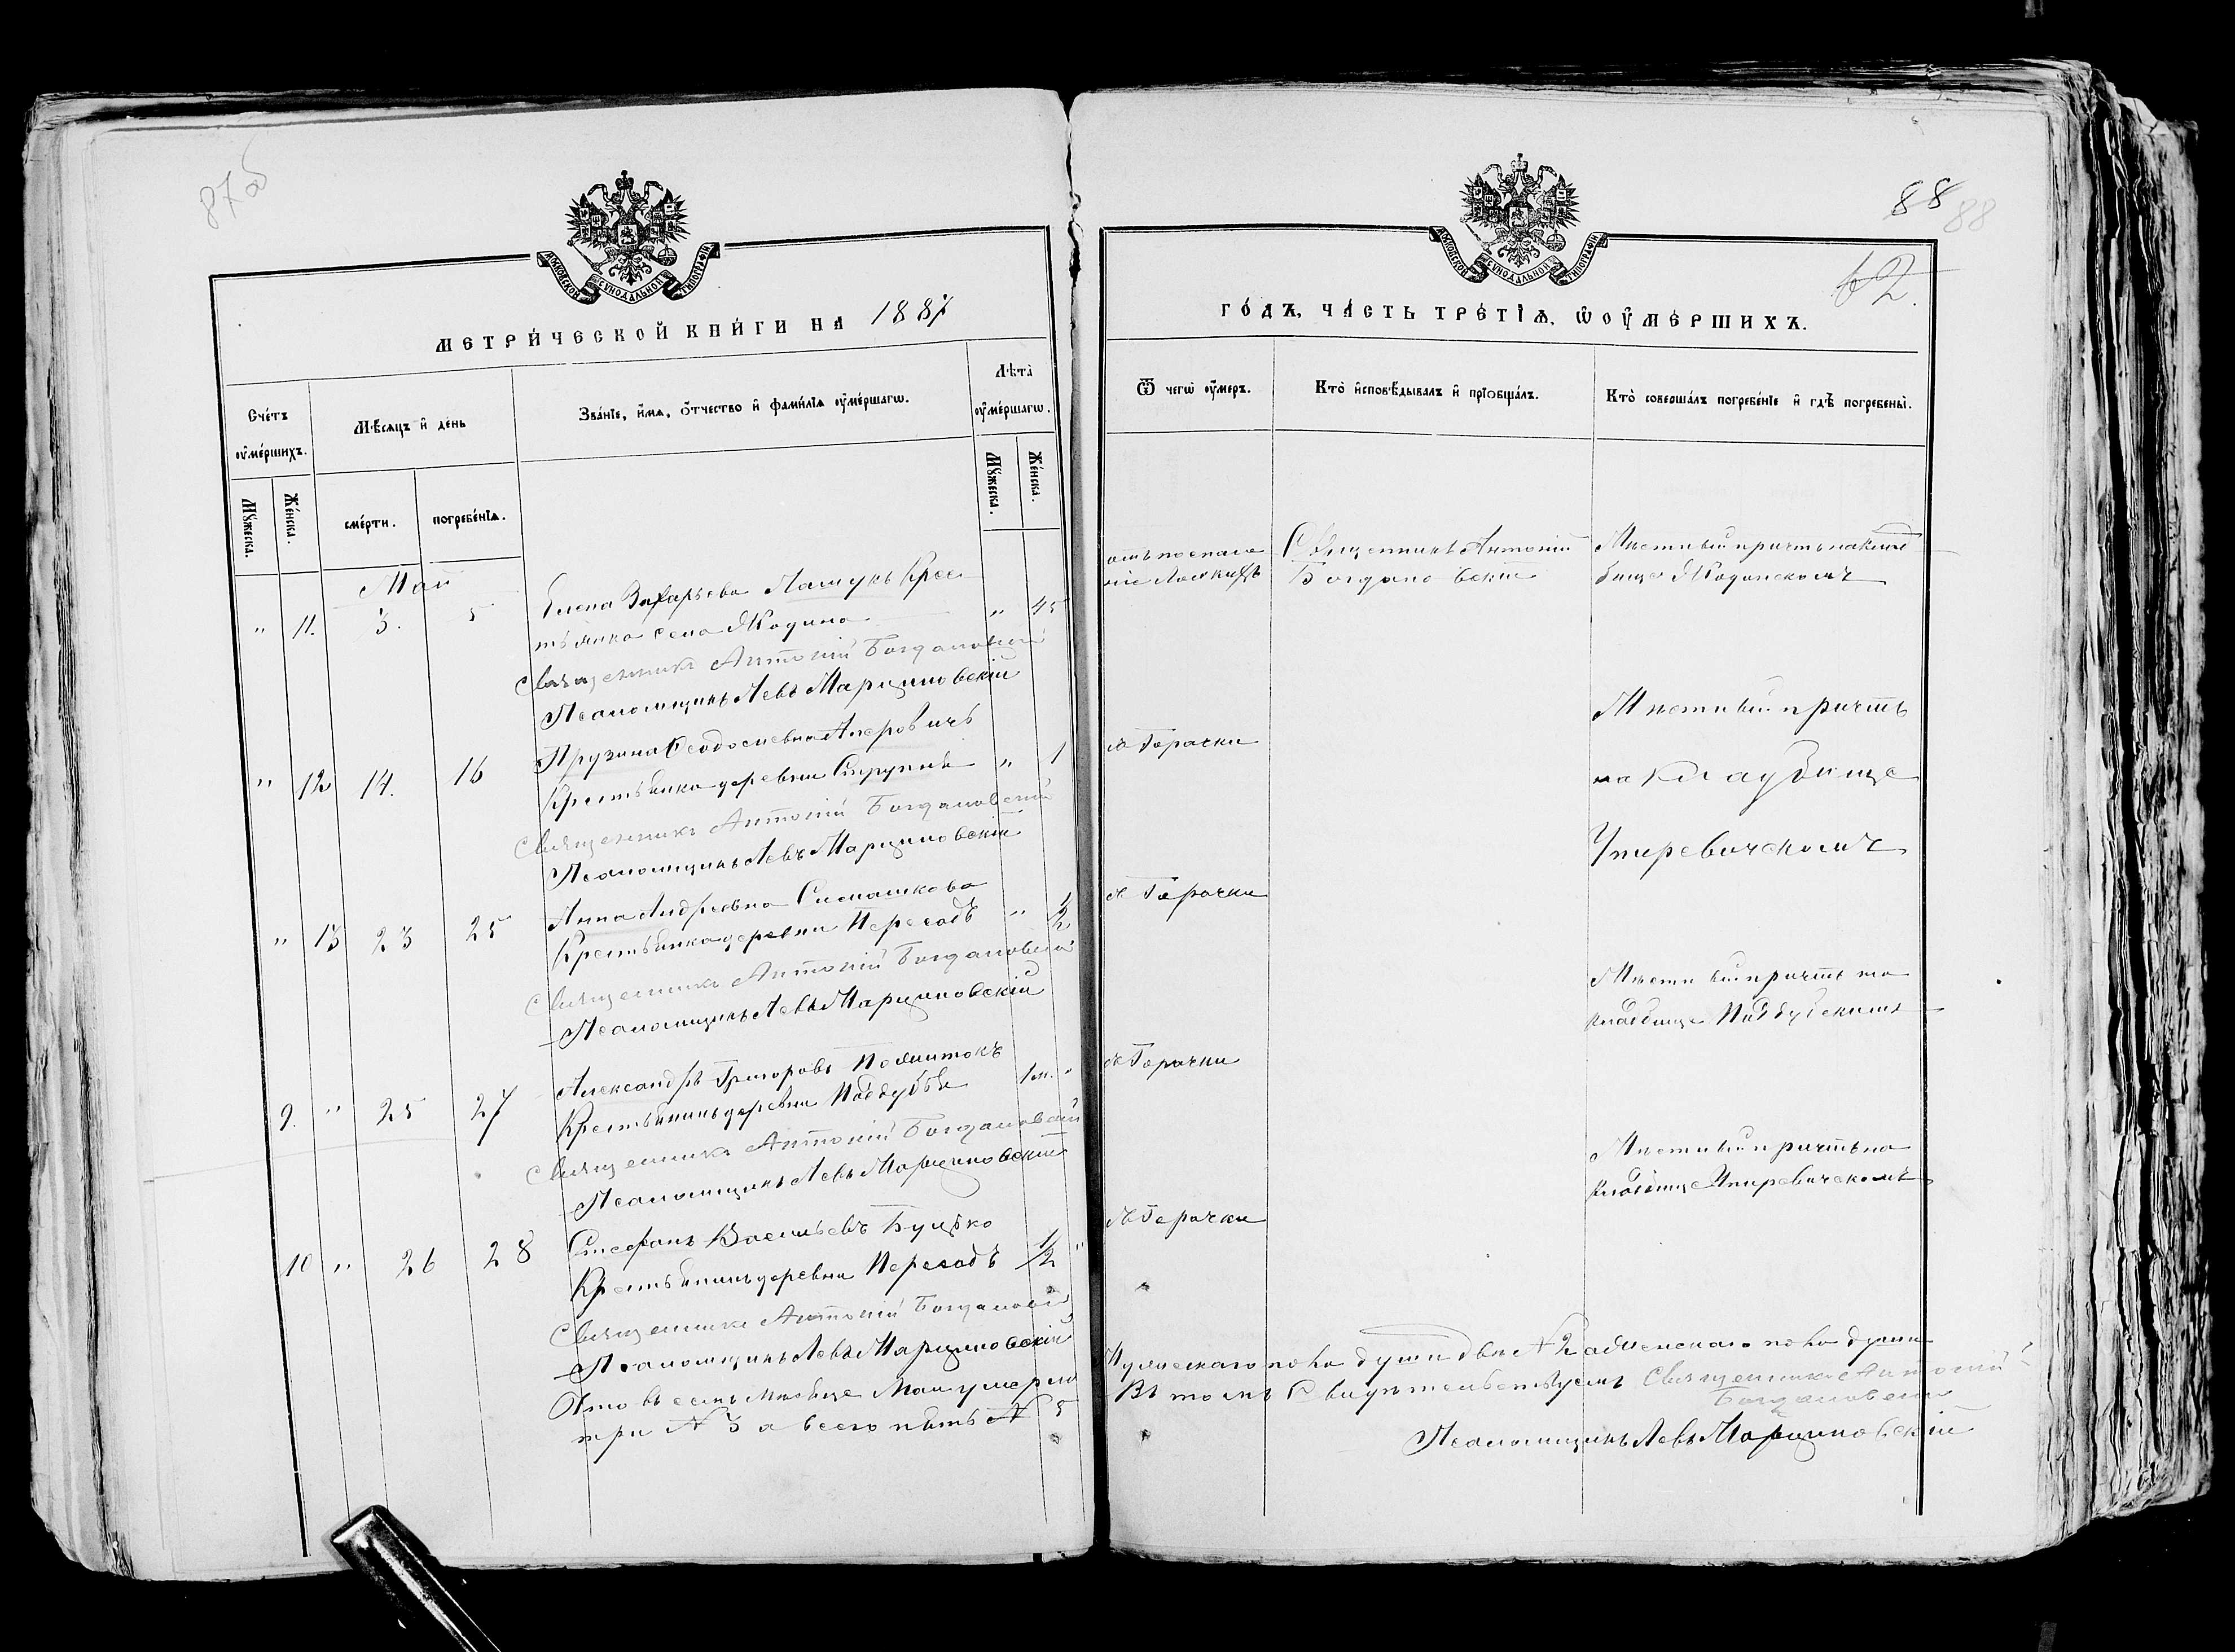 87об
МОСКОВСКОЙ СѴНОДАЛЬНОЙ ТИПОГРАФІИ
МЕТРИ́ЧЕСКОЙ КНИ́ГИ НА 1887
Сче́тъ ᲂу҆ме́ршихъ.
Мꙋ́жеска.
Же́нска.
Мѣ́сяцъ и҆ де́нь
сме́рти.
погребе́нїѧ.
Зва́нїе, и҆́мѧ, ѻ҆́тчество и҆ фами́лїѧ ᲂу҆ме́ршагѡ.
Лѣта̀ ᲂу҆ме́ршагѡ.
Мꙋ́жеска.
Же́нска.
Май
" 11. 3. 5 Елена Захарьева Лашукъ Крес
тьянка села Яжодина " 45
Священникъ Антоній Богдановскій
Псаломщикъ Левъ Марциновскій
" 12 14. 16 Прузына Ѳеодосиевна
Крестьянка деревни " 1
Священникъ Антоній Богдановскій
Псаломщикъ Левъ Марциновскій
" 13 23 25 Анна Андреевна Симашкова
Крестьянка деревни Переходъ " 1/2
Священникъ Антоній Богдановскій
Псаломщикъ Левъ Марциновскій
9. " 25 27 Александръ Григоровъ
Крестьянинъ деревни Поддубья 1 м. "
Священникъ Антоній Богдановскій
Псаломщикъ Левъ Марциновскій
10 " 26 28 Стефанъ Васильевъ Буцько
Крестьянинъ деревни Переходъ 1/2 "
Священникъ Антоній Богдановскій
Псаломщикъ Левъ Марциновскій
Что въ семъ мѣсяце Маи умерло
три № 3 а всего пять № 5
88 88
62.
МОСКОВСКОЙ СѴНОДАЛЬНОЙ ТИПОГРАФІИ
ГО́ДЪ, ЧА́СТЬ ТРЕ́ТЇѦ, Ѡ҆ ОУ҆МЕ́РШИХЪ.
Ѿ чегѡ̀ ᲂу҆́меръ.
Кто̀ и҆сповѣ́дывалъ и҆ прїѡбща́лъ.
Кто̀ соверша́лъ погребе́нїе и҆ гдѣ̀ погребены̀.
отъ воспале Священникъ Антоній Мѣстный причтъ на клад
Богдановскій бище
Мѣстный причтъ
Горачки
на кладбище
Упиревичскомъ
Горачки
Мѣстный причтъ на
кладбище Поддубскомъ
Горачки
Мѣстный причтъ на
кладбище Упиревичскомъ
Горачки
Мужескаго пола души двѣ № 2 а женскаго пола души
Въ томъ Свидѣтельствуемъ Священникъ Антоній
Богдановскій
Псаломщикъ Левъ Марциновскій